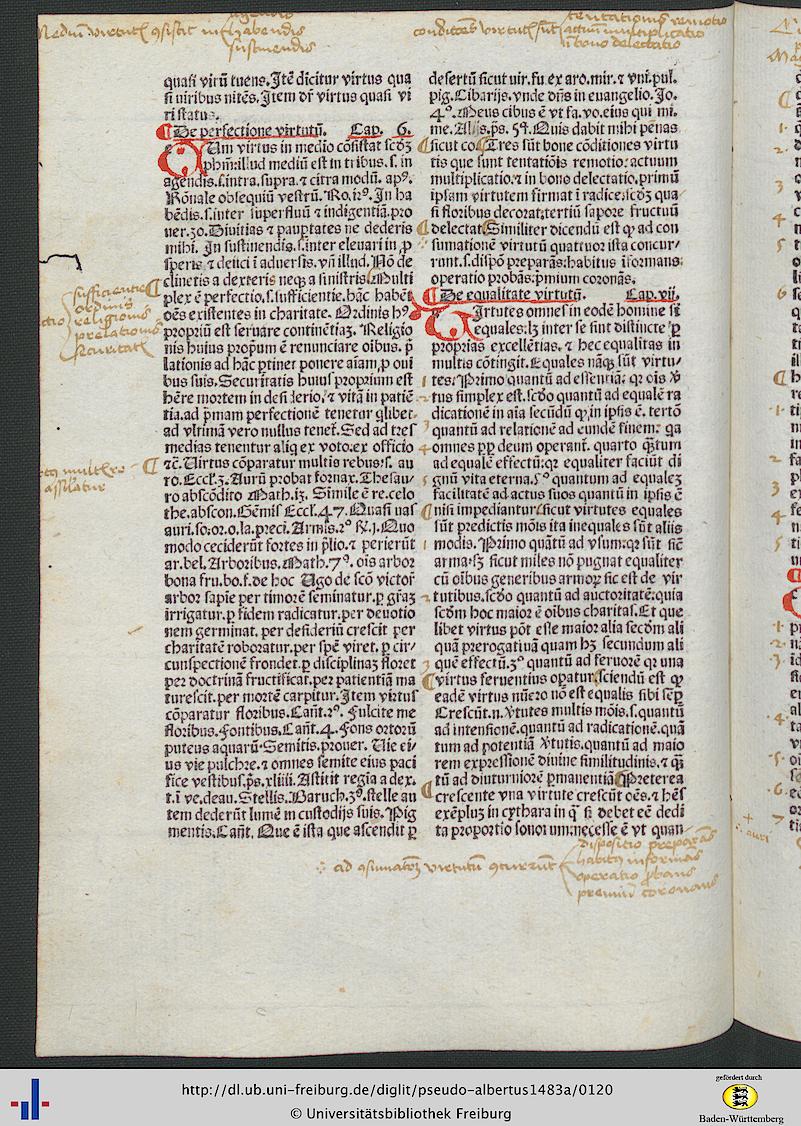 Mediu virtutis ꝯsistit in
agendis
habendis
sustinendis
conditiões virtutis sūt
tentationis remotio
actuum multiplicatio
ī bono delectatio
quaſi virū tuens. Itē dicitur virtus qua
ſi viribus nitēs. Item dr̄ virtus quaſi vi
ri ſtatus.
De perfectione virtutū. Cap. 6.
Cum virtus in medio cōſiſtat ſcdꝫ
phm̄: illud mediū eſt in tribus. ſ. in
agendis. ſ. intra. ſupra. ⁊ citra modū. apꝰ.
Rōnale obſequiū veſtrū. Ro. 12ꝰ. In ha
bēdis. ſ. inter ſuperfluū ⁊ indigentiā. pro
uer. 30. Diuitias ⁊ pauptates ne dederis
mihi. In ſuſtinendis. ſ. inter eleuari in ꝓ
ſperis ⁊ deiici ī aduerſis. vn̄ illud. Nō de
clinetis a dexteris neqꝫ a ſiniſtris Multi
plex ē perfectio. ſ. ſufficientie. hāc habēt
oēs exiſtentes in charitate. Ordinis hꝰ
propriū eſt ſeruare continētiaꝫ. Religio
nis huius propꝛiū ē renunciare oibus. p̄
lationis ad hāc ꝑtinet ponere aīam. ꝓ oui
bus ſuis. Securitatis huius proprium eſt
hēre mortem in deſiderio. ⁊ vitā in patiē
tia. ad pꝛmam perfectionē tenetur qlibet.
ad vltimā vero nullus tenet̄. Sed ad tres
medias tenentur aliq ex voto. ex officio
⁊c̄. Uirtus cōparatur multis rebus. ſ. au
ro. Eccl. 3. Aurū probat fornax. Theſau
ro abſcōdito Math. 13. Simile ē re. celo
the. abſcon. Gēmis Eccl. 4.7. Quaſi uas
auri. ſo. or. o. la. preci. Armis. 2ꝰ R. 1. Quo
modo ceciderūt fortes in p̄lio. ⁊ perierūt
ar. bel. Arboribus. Math. 7ꝰ. oīs arbor
bona fru. bo. f. de hoc Ugo de ſcō victor̄
arbor ſapiē per timorē ſeminatur. ꝑ gr̄aꝫ
irrigatur. ꝑ fidem radicatur. per deuotio
nem germinat. per deſideriū creſcit per
charitatē roboratur. per ſpē viret. ꝑ cir/
cunſpectionē frondet. ꝑ diſciplinaꝫ floret
per doctrinā fructificat. per patientiā ma
tureſcit. per mortē carpitur. Item virtus
cōparatur floribus. Cañt. 2ꝰ. Fulcite me
floribus. Fontibus. Cañt. 4. Fons ortorū
puteus aquarū. Semitis. prouer. Uie ei/
us vie pulchre. ⁊ omnes ſemite eius paci
fice veſtibuſ. pſ. xliiii. Aſtitit regia a dex.
t. i ve. deau. Stellis. Baruch. 3ꝰ. ſtelle au
tem dederūt lumē in cuſtodijs ſuis. Pig
mentis. Cañt. Que ē iſta que aſcendit ꝑ
deſertū ſicut uir. fu. ex aro. mir. ⁊ vni. pul.
pig. Cibarijs. vnde dn̄s in euangelio. Jo.
4ꝰ. Meus cibus ē vt fa. vo. eius qui mi.
me. Alis. ps. 54. Quis dabit mihi pēnas
ſicut co. Tres ſūt bone cōditiones virtu
tis que ſunt tentatiōis remotio: actuum
multiplicatio: ⁊ in bono delectatio. primū
ipſam virtutem firmat ī radice: ſcdꝫ qua
ſi floribus decorat: tertiū ſapore fructuū
delectat Similiter dicendū eſt ꝙ ad con
ſumationē virtutū quattuor iſta concur/
runt. ſ. diſpō preparās: habitus īformans:
operatio probās: pꝛmium coronās.
De equalitate virtutū. Cap. vii.
Uirtutes omneſ in eodē homine ſt̄
equales. lꝫ inter ſe ſint diſtincte ꝑ
proprias excellētias. ⁊ hec equalitas in
multis cōtingit. Equales nāqꝫ ſūt virtu/
tes. Primo quantū ad eſſentiā: qꝛ oīs v̄
tus ſimplex eſt. ſcdo quantū ad equalē ra
dicationē in aīa ſecūdū ꝙ in ipſis ē. tertō
quantū ad relationē ad eundē finem: qꝛ
omnes ꝓp̄ deum operant̄. quarto qꝛtum
ad equalē effectū: qꝛ equaliter faciūt di
gnū vita eterna. 5ꝰ quantum ad equaleꝫ
facilitatē ad actus ſuos quantū in ipſis ē
niſi impediantur ſicut virtutes equales
ſūt predictis mōis ita inequales ſūt aliis
modis. Primo quātū ad vſum: qꝛ ſūt ſic̄
arma: ſꝫ ſicut miles nō pugnat equaliter
cū oibus generibus armoꝝ ſic eſt de vir
tutibus. ſcdo quantū ad auctoritatē: quia
ſcdm hoc maior ē oibus charitas. Et que
libet virtus pōt eſſe maior alia ſecdm ali
quā prerogatiuā quam hꝫ ſecundum ali
quē effectū. 3ꝰ quantū ad feruorē qꝛ una
virtus feruentius opatur ſciendū eſt ꝙ
eadē virtus nūero nō eſt equalis ſibi ſēꝑ
Creſcūt. n. vtutes multis mōis. ſ. quantū
ad intenſionē. quantū ad radicationē. quā
tum ad potentiā vtutis. quantū ad maio
rem expreſſionē diuine ſimilitudinis. ⁊ qꝛ
tū ad diuturniorē ꝑmanentiā Preterea
creſcente vna virtute creſcūt oēs. ⁊ hēſ
exēpluꝫ in cythara in qͥ ſi debet eē dedi
ta proportio ſonorum: neceſſe ē vt quan/
sufficientie
ordinis
religionis
prelationis
securitatis
assilatur
ad ꝯsumatōꝫ virtutū ꝯcurrūt
dispositio preparās
habitꝰ informās
operatio ꝓbans
premiū coronans
http://dl.ub.uni-freiburg.de/diglit/pseudo-albertus1483a/0120
© Universitätsbibliothek Freiburg
gefördert durch
Baden-Württemberg